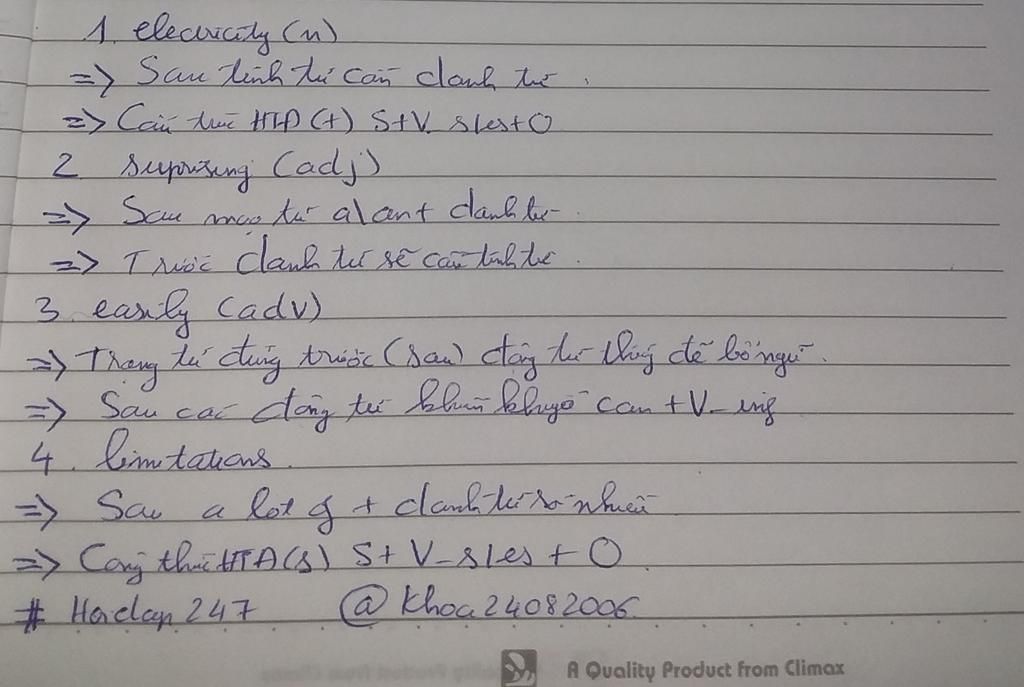 1. electricity (n)
=> Sau tính từ cần danh từ.
=> Cấu trúc HTĐ (+) S+V_s/es+O
2 surprising (adj)
=> Sau mạo từ a/an + danh từ.
=> Trước danh từ sẽ cần tính từ.
3. easily (adv)
=> Trạng từ đứng trước (sau) động từ thường để bổ ngữ.
=> Sau các động từ khuyết can + V_ing
4. limitations.
=> Sau a lot of + danh từ số nhiều
=> Công thức HTĐ (s) S + V_s/es + O.
# Hoidap 247 @ Khoa24082006.
A Quality Product from Climax